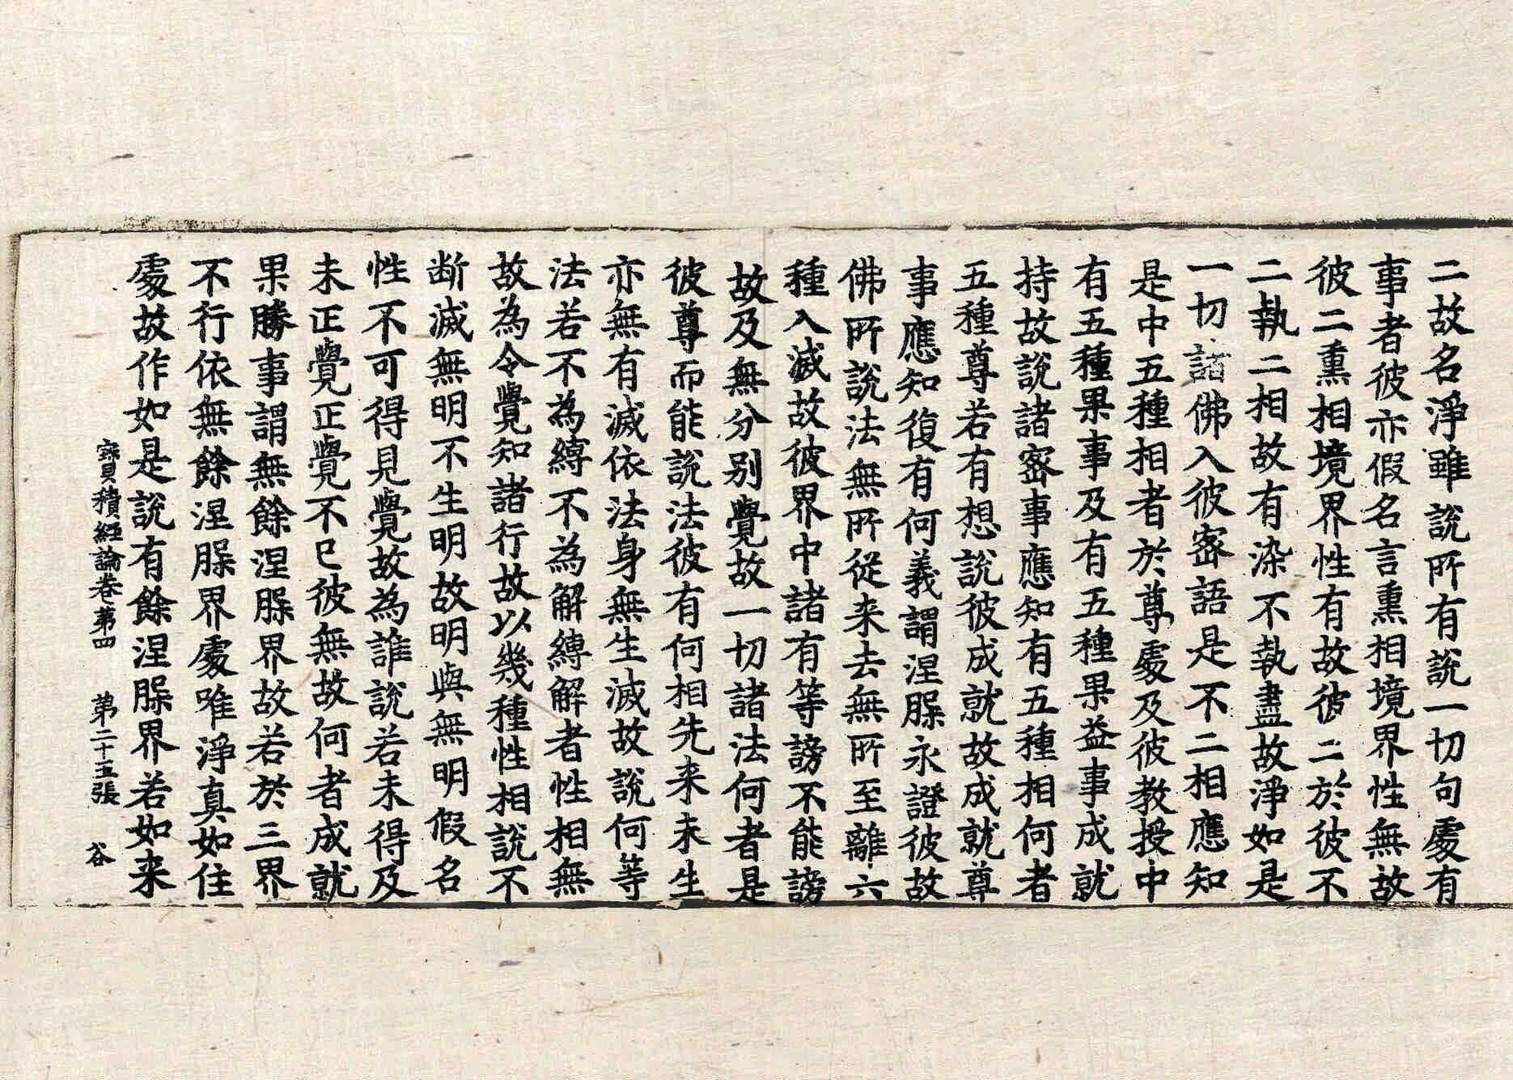 二故名淨雖說所有說一切句處有
事者彼亦假名言熏相境界性無故
彼二熏相境界性有故彼二於彼不
二執二相故有染不執盡故淨如是
一切諸佛入彼密語是不二相應知
是中五種相者於尊處及彼教授中
有五種果事及有五種果益事成就
持故說諸密事應知有五種相何者
五種尊若有想說彼成就故成就尊
事應知復有何義謂涅𣵀永證彼故
佛所說法無所從来去無所至離六
種入滅故彼界中諸有等謗不能謗
故及無分別覺故一切諸法何者是
彼尊而能說法彼有何相先来未生
亦無有滅依法身無生滅故說何等
法若不為縛不為解縛解者性相無
故為令覺知諸行故以幾種性相說不
斷滅無明不生明故明與無明假名
性不可得見覺故為誰說若未得及
未正覺正覺不已彼無故何者成就
果勝事謂無餘涅𣵀界故若於三界
不行依無餘涅𣵀界處唯淨真如住
處故作如是說有餘涅𣵀界若如来
寳積經論卷第四 第二十五張 谷